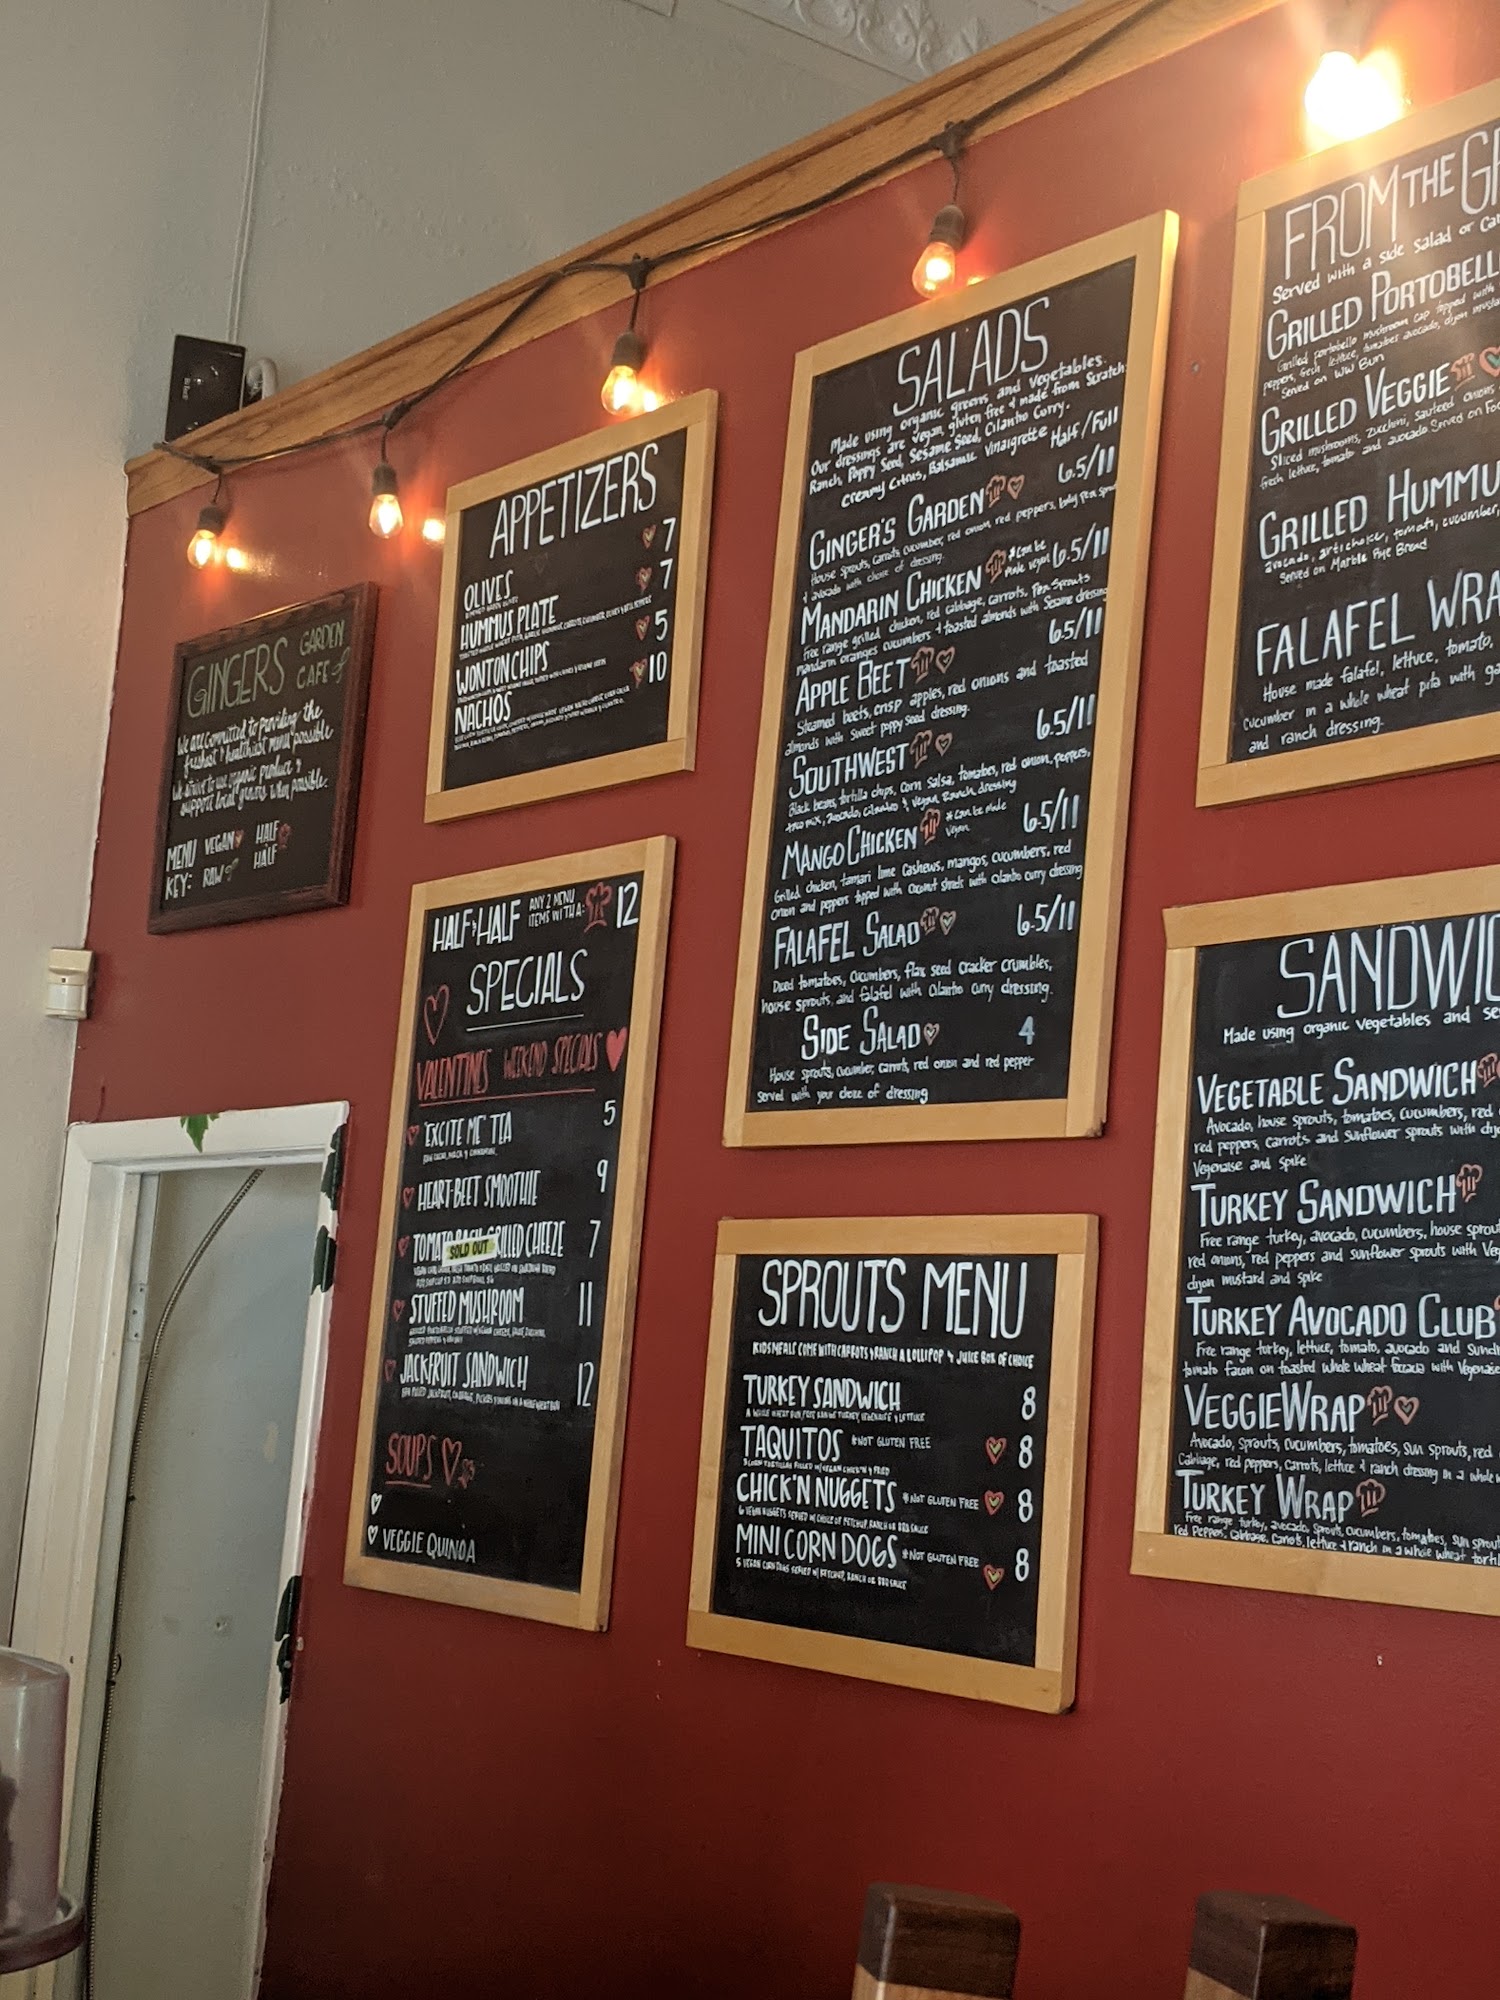 GINGERS GARDEN
CAFE
We are committed to providing the
freshest & healthiest menu possible
We strive to use organic produce &
support local growers when possible.
MENU VEGAN HALF
KEY: RAW HALF
APPETIZERS
OLIVES 7
HUMMUS PLATE 7
WONTON CHIPS 5
NACHOS 10
HALF & HALF ANY 2 MENU
ITEMS WITH A: 12
SPECIALS
VALENTINES WEEKEND SPECIALS
'EXCITE ME' TEA 5
HEART-BEET SMOOTHIE 9
TOMATO GRILLED CHEEZE 7
SOLD OUT
STUFFED MUSHROOM 11
JACKFRUIT SANDWICH 12
SOUPS
VEGGIE QUINOA
SALADS
Made using organic greens and vegetables.
Our dressings are vegan, gluten free & made from Scratch:
Ranch, Poppy Seed, Sesame Seed, Cilantro Curry,
Creamy Citrus, Balsamic Vinaigrette Half/Full
GINGER'S GARDEN 6.5/11
House sprouts, carrots, cucumber, red onion, red peppers,
& avocado with choice of dressing.
MANDARIN CHICKEN *can be made vegan 6.5/11
Free range grilled chicken, red cabbage, carrots, Pea Sprouts
mandarin oranges cucumbers & toasted almonds with Sesame dressing
APPLE BEET 6.5/11
Steamed beets, crisp apples, red onions and toasted
almonds with sweet poppy seed dressing.
SOUTHWEST 6.5/11
Black beans, tortilla chips, corn salsa, tomatoes, red onion, peppers,
taco mix, avocado, cilantro & vegan Ranch dressing
MANGO CHICKEN *can be made vegan 6.5/11
Grilled chicken, tamari lime cashews, mangos, cucumbers, red
onion and peppers topped with coconut shreds with cilantro curry dressing
FALAFEL SALAD 6.5/11
Diced tomatoes, cucumbers, flax seed cracker crumbles,
house sprouts, and falafel with cilantro curry dressing.
SIDE SALAD 4
House sprouts, cucumber, carrots, red onion and red pepper
served with your choice of dressing
SPROUTS MENU
KIDS MEALS COME WITH CARROTS & RANCH A LOLLIPOP & JUICE BOX OF CHOICE
TURKEY SANDWICH 8
A WHOLE WHEAT BUN, FREE RANGE TURKEY, VEGENAISE & LETTUCE
TAQUITOS *NOT GLUTEN FREE 8
3 CORN TORTILLAS FILLED W/ VEGAN CHICK'N & FRIED
CHICK'N NUGGETS *NOT GLUTEN FREE 8
6 VEGAN NUGGETS SERVED W/ CHOICE OF KETCHUP, RANCH OR BBQ SAUCE
MINI CORN DOGS *NOT GLUTEN FREE 8
5 VEGAN CORN DOGS SERVED W/ KETCHUP, RANCH OR BBQ SAUCE
FROM THE GR
Served with a side salad or
GRILLED PORTOBELL
Grilled portobello mushroom cap topped with
peppers, fresh lettuce, tomatoes avocado, dijon
Served on WW Bun
GRILLED VEGGIE
Sliced mushrooms, zucchini, sauteed onions
fresh lettuce, tomato and avocado Served on
GRILLED HUMMU
avocado, artichoke, tomato, cucumber,
Served on Marble Rye Bread
FALAFEL WRA
House made falafel, lettuce, tomato,
cucumber in a whole wheat pita with
and ranch dressing.
SANDWIC
Made using organic vegetables and se
VEGETABLE SANDWICH
Avocado, house sprouts, tomatoes, cucumbers, red
red peppers, carrots and sunflower sprouts with
Vegenaise and spike
TURKEY SANDWICH
Free range turkey, avocado, cucumbers, house
red onions, red peppers and sunflower sprouts with
dijon mustard and spike
TURKEY AVOCADO CLUB
Free range turkey, lettuce, tomato, avocado and
tomato facon on toasted whole wheat focaccia with
VEGGIE WRAP
Avocado, sprouts, cucumbers, tomatoes, sun sprouts, red
Cabbage, red peppers, carrots, lettuce & ranch dressing in a whole
TURKEY WRAP
Free range turkey, avocado, sprouts, cucumbers, tomatoes, sun
red peppers, cabbage, carrots, lettuce & ranch in a whole wheat